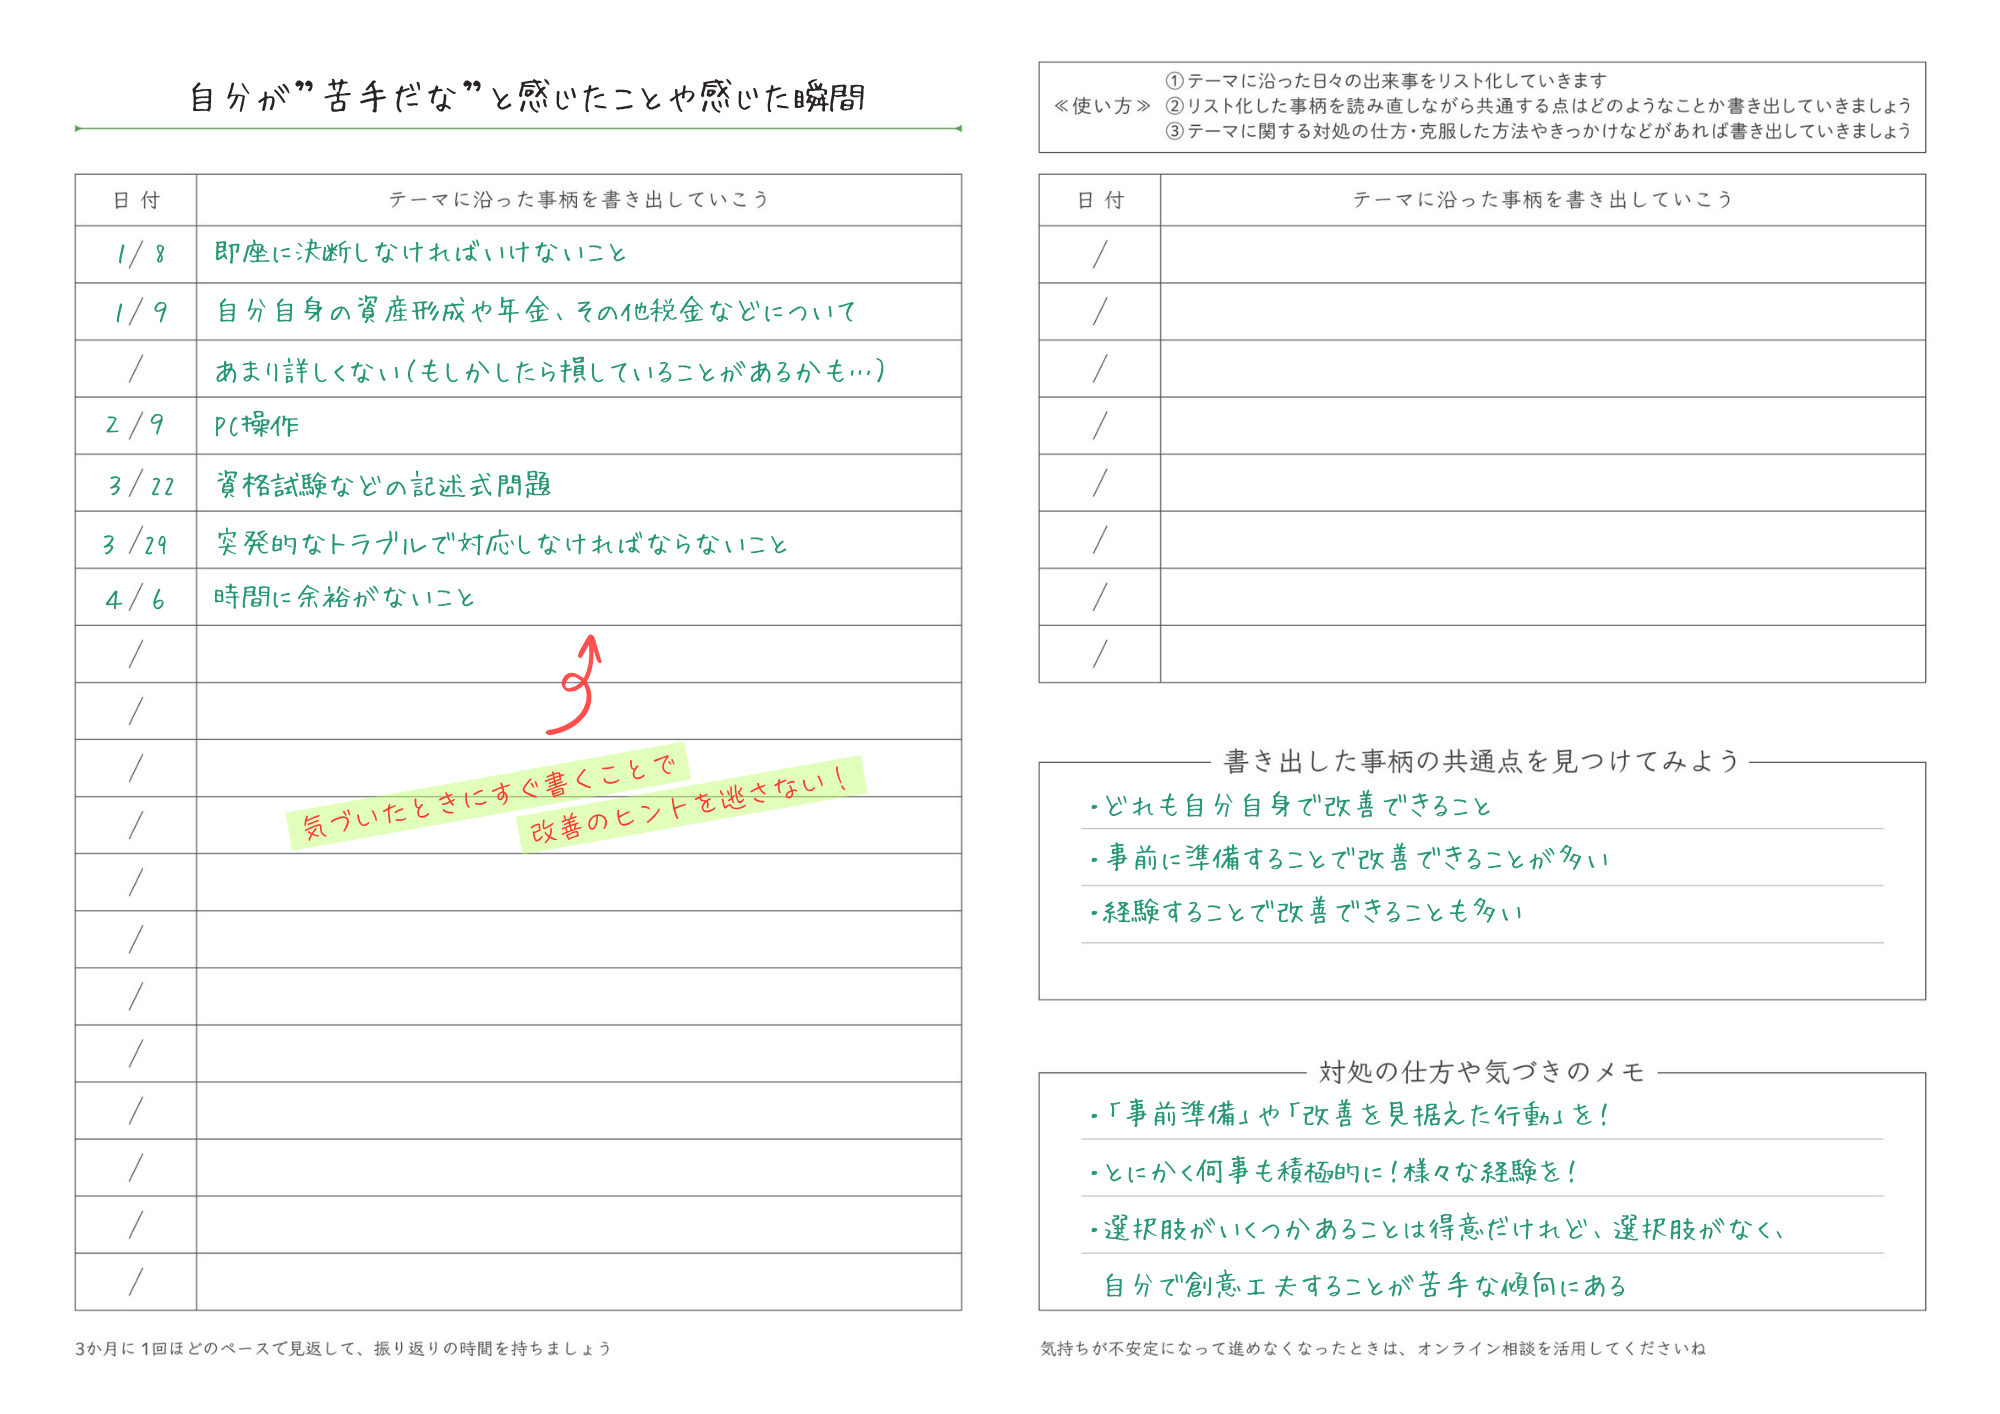 自分が”苦手だな”と感じたことや感じた瞬間
日 付 テーマに沿った事柄を書き出していこう
1/8 即座に決断しなければいけないこと
1/9 自分自身の資産形成や年金、その他税金などについて
/ あまり詳しくない(もしかしたら損していることがあるかも…)
2/9 PC操作
3/22 資格試験などの記述式問題
3/29 突発的なトラブルで対応しなければならないこと
4/6 時間に余裕がないこと
/
/
/
/
/
/
/
/
/
/
/
/
気づいたときにすぐ書くことで
改善のヒントを逃さない！
3か月に1回ほどのペースで見返して、振り返りの時間を持ちましょう
≪使い方≫
①テーマに沿った日々の出来事をリスト化していきます
②リスト化した事柄を読み直しながら共通する点はどのようなことか書き出していきましょう
③テーマに関する対処の仕方・克服した方法やきっかけなどがあれば書き出していきましょう
日 付 テーマに沿った事柄を書き出していこう
/
/
/
/
/
/
/
/
書き出した事柄の共通点を見つけてみよう
・どれも自分自身で改善できること
・事前に準備することで改善できることが多い
・経験することで改善できることも多い
対処の仕方や気づきのメモ
・「事前準備」や「改善を見据えた行動」を！
・とにかく何事も積極的に！様々な経験を！
・選択肢がいくつかあることは得意だけれど、選択肢がなく、
自分で創意工夫することが苦手な傾向にある
気持ちが不安定になって進めなくなったときは、オンライン相談を活用してくださいね